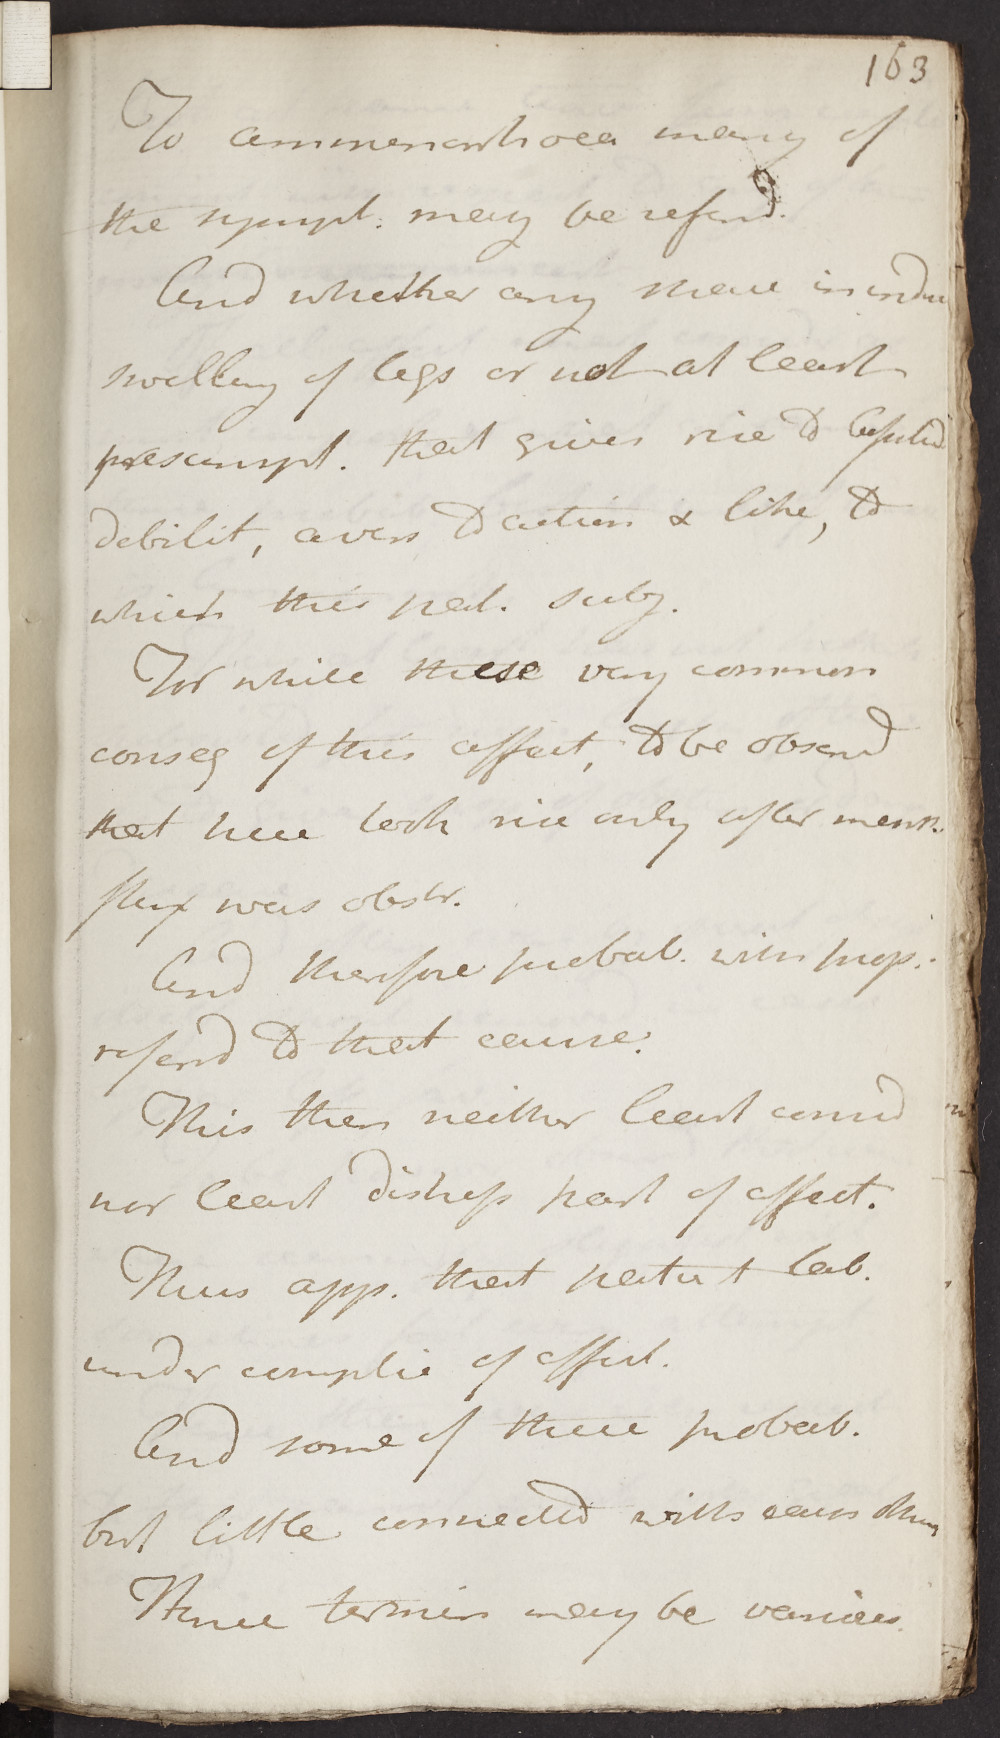 163
To ammenorrhoea many of
the sympt: may be referd.
And whether any share in indu
swelling of legs or not at least
presumpt. that gives rise to
debilit, avers to action & like, to
which this pat. subj.
For while these very common
conseq of this affect, to be observd
that here took rise only after menst.
flux was obstr.
And therefore probab. with prop.
referd to that cause.
This then neither least
nor least distress part of affect.
Thus app. that patient lab.
under complic of affect.
And some of these probab.
but little connected with each other
Hence termin may be various.